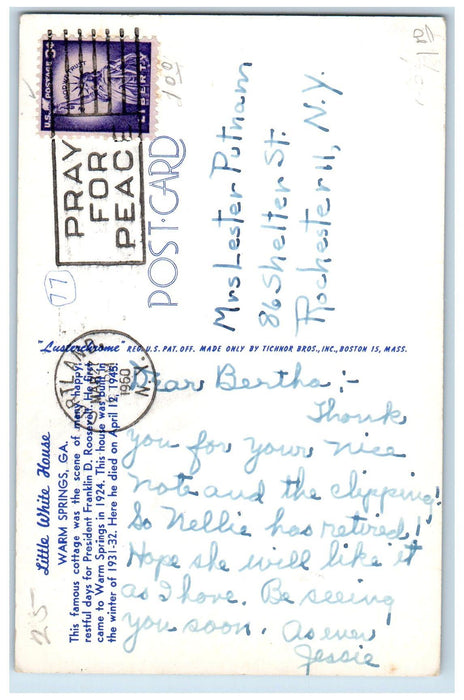 U.S. POSTAGE 3¢
IN GOD WE TRUST
LIBERTY
PRAY
FOR
PEACE
POST CARD
Mrs Lester Putnam
86 Shelter St.
Rochester 11, N.Y.
77
"Lusterchrome" REG. U.S. PAT. OFF. MADE ONLY BY TICHNOR BROS., INC., BOSTON 15, MASS.
CORTLAND
MAR
1960
N.Y.
Little White House
WARM SPRINGS, GA.
This famous cottage was the scene of many happy,
restful days for President Franklin D. Roosevelt. He first
came to Warm Springs in 1924. This house was built in
the winter of 1931-32. Here he died on April 12, 1945.
Dear Bertha :-
Thank
you for your nice
note and the clipping.
So Nellie has retired!
Hope she will like it
as I have. Be seeing
you soon. As ever
Jessie
25-